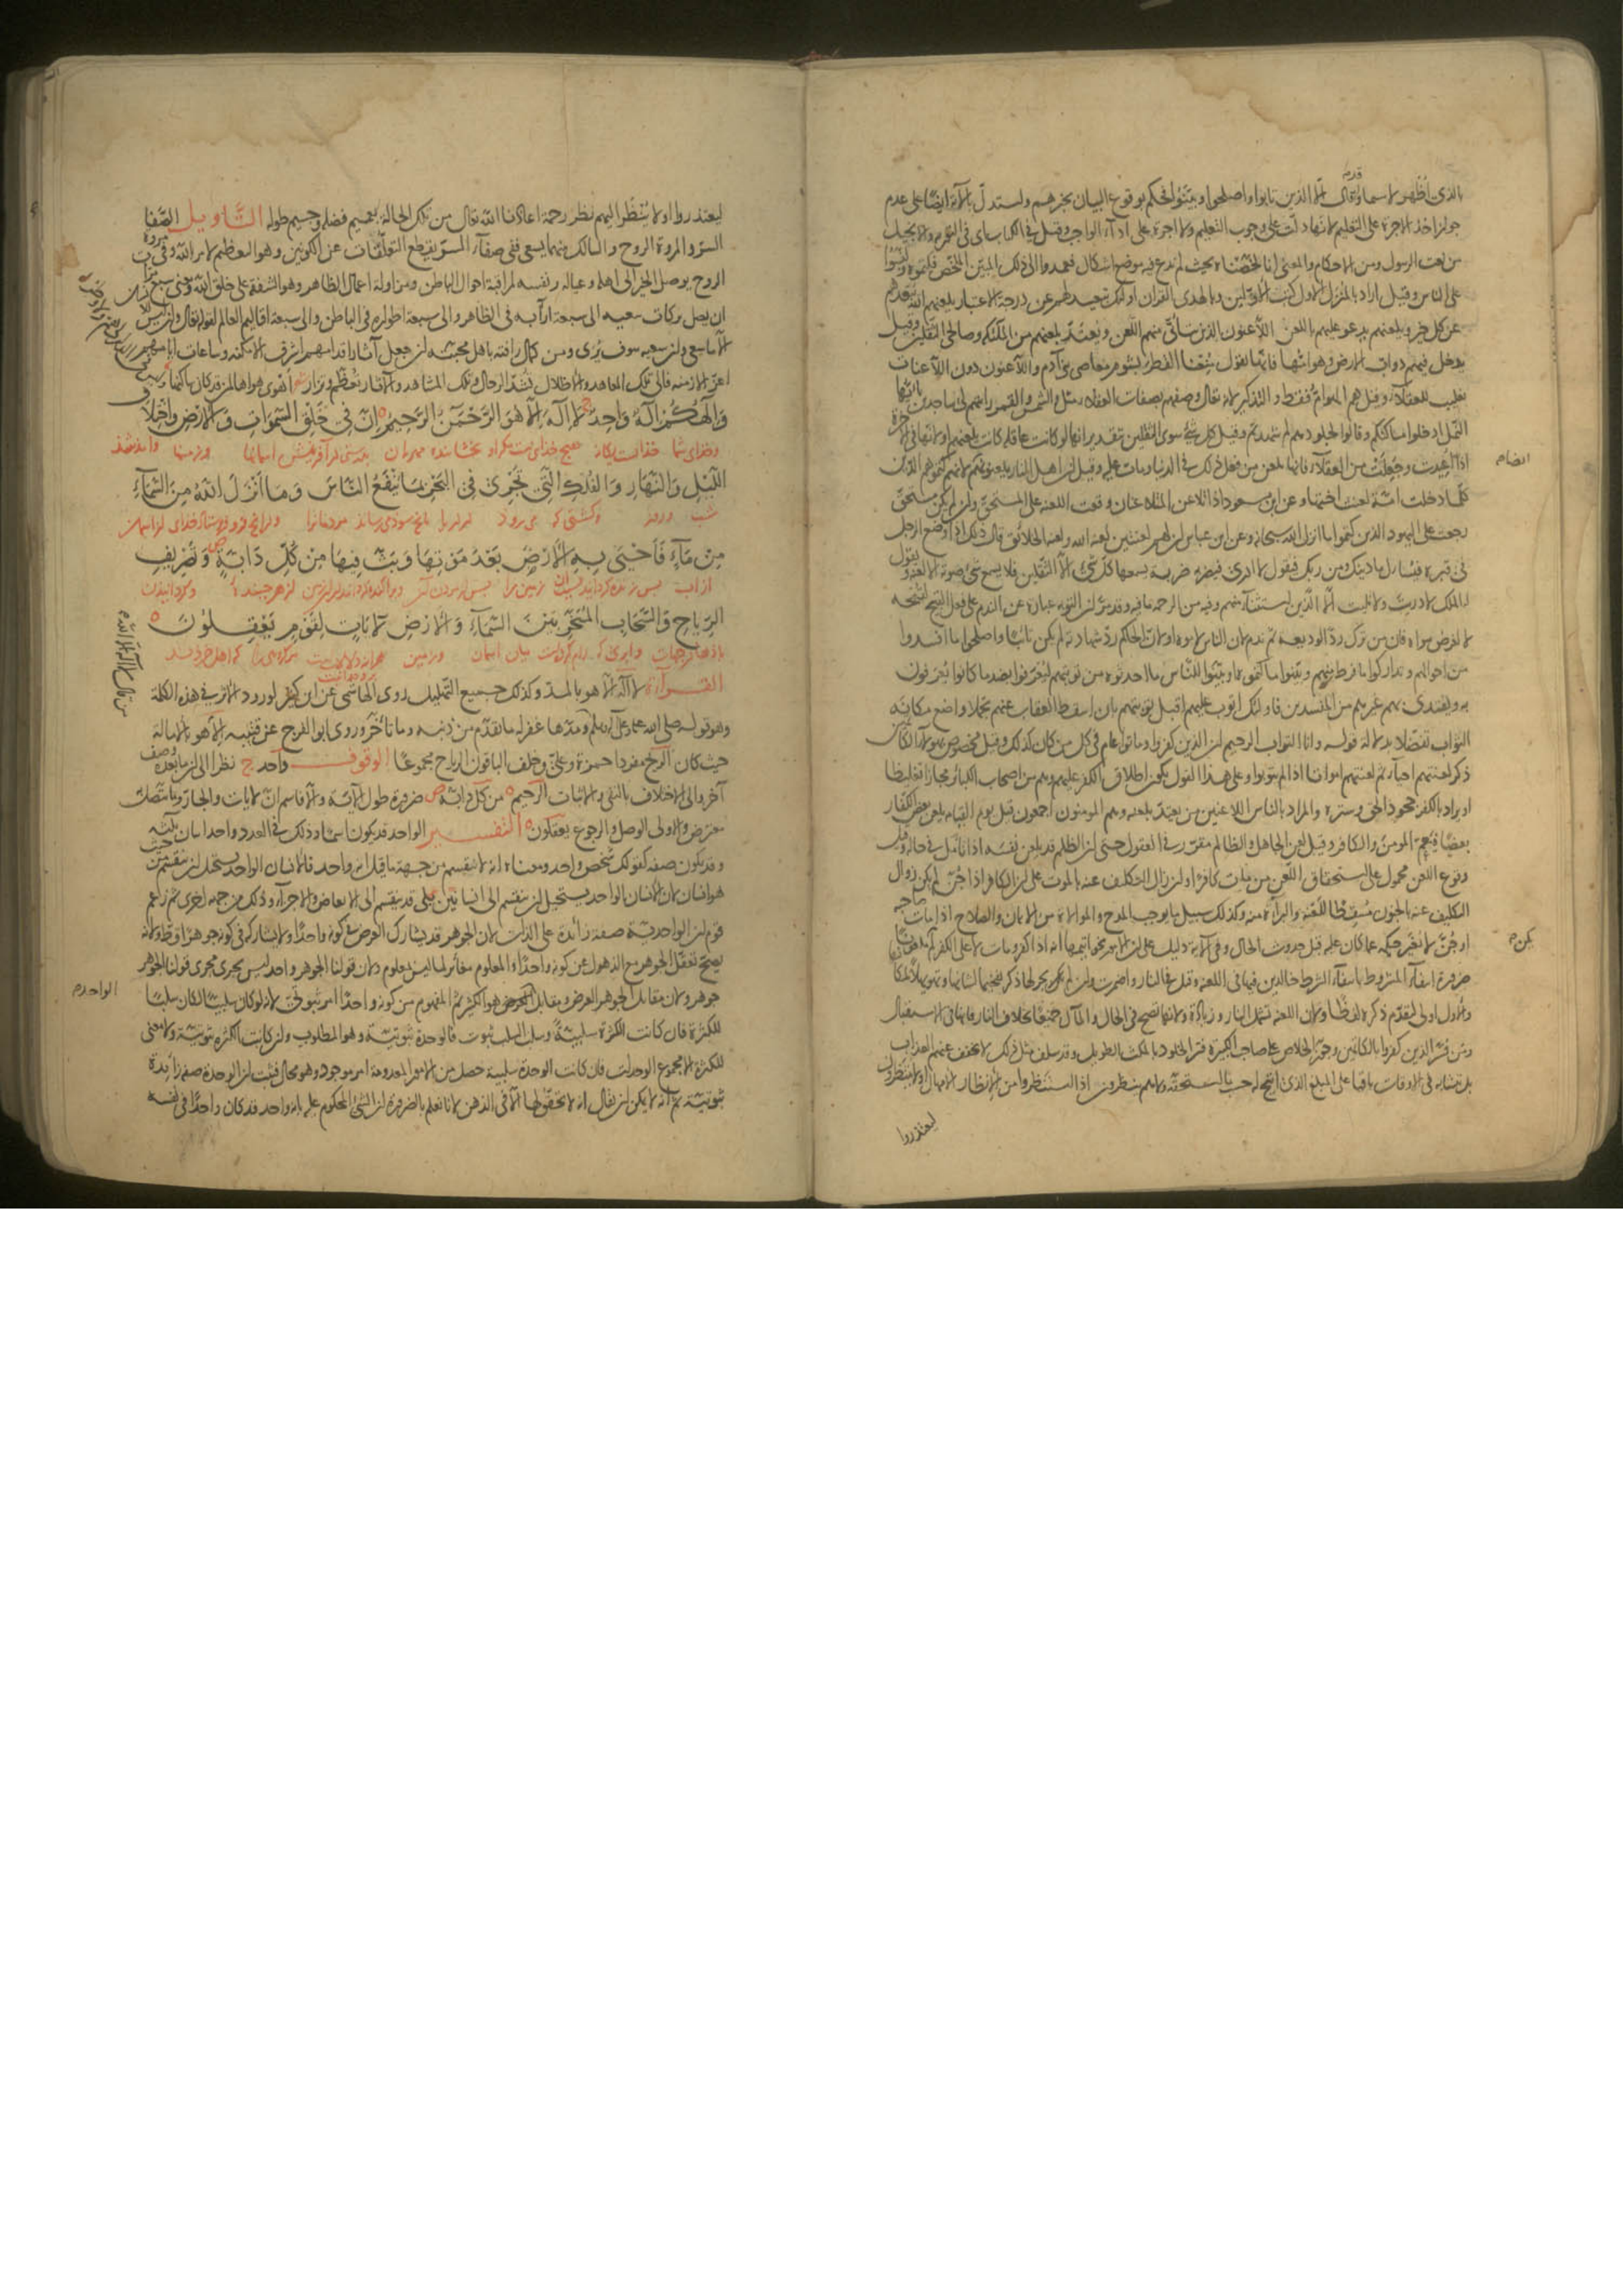 قدم
بالذي اظهر لاسما وقال الا الذين تابوا واصلحوا وبينوا فحكم بوقوع البيان بخبرهم واستدل بالآية ايضا على عدم
جواز اخذ الاجرة على التعليم لانها دلت على وجوب التعليم ولا اجرة على اداء الواجب وقيل في الكتاب اي في التورية والانجيل
من نعت الرسول ومن الاحكام والمعنى انا لخصناه بحيث لم ندع فيه موضع اشكال فعمدوا الى ذلك المبين الملخص فكتموه ولبسوا
على الناس وقيل اراد بالمنزل الاول كتب الاولين وبالهدى القران اولئك تبعيد لهم عن درجة الاعتبار يلعنهم الله يبعدهم
عن كل خير ويلعنهم يدعو عليهم باللعن اللاعنون الذين يتأتى منهم اللعن ويعتد بلعنهم من الملئكة وصالحي الثقلين وقيل
يدخل فيهم دواب الارض وهوامها فانها تقول منعنا القطر بشوم معاصي بني آدم واللاعنون دون اللاعنات
تغليب للعقلاء وقيل هم الهوام فقط والتذكير لانه تعالى وصفهم بصفات العقلاء مثل والشمس والقمر رايتهم لي ساجدين يا ايها
النمل ادخلوا مساكنكم وقالوا لجلودهم لم شهدتم وقيل كل شئ سوى الثقلين بتقدير انها لو كانت عاقلة كانت تلعنهم او لانها في الآخرة
اذا اعيدت وجعلت من العقلاء فانها تلعن من فعل ذلك في الدنيا ومات عليه وقيل ان اهل النار يلعنونهم لانهم كتموهم الدين
كلما دخلت امة لعنت اختها وعن ابن مسعود اذا تلاعن المتلاعنان وقعت اللعنة على المستحق وان لم يكن مستحق
رجعت على اليهود الذين كتموا ما انزل الله سبحانه وعن ابن عباس ان لهم لعنتين لعنة الله ولعنة الخلائق قال ذلك اذا وضع الرجل
في قبره فيسأل ما دينك ومن ربك فيقول لا ادري فيضرب ضربة يسمعها كل شئ الا الثقلين فلا يسمع شئ صوته الا لعنه ويقول
له الملك لا دريت ولا تليت الا الذين استثناء منهم وفيه من الرحمة ما فيه وقد مر ان التوبة عبارة عن الندم على فعل القبيح لقبحه
لا لغرض سواه فان من ترك رد الوديعة ثم ندم لان الناس لاموه او لان الحاكم رد شهادته لم يكن تائبا واصلحوا ما افسدوا
من احوالهم وتداركوا ما فرط منهم وبينوا ما كتموه او وبينوا للناس ما احدثوه من توبتهم ليعرفوا بضد ما كانوا يعرفون
به ويقتدي بهم غيرهم من المفسدين فاولئك اتوب عليهم اقبل توبتهم بان اسقط العقاب عنهم تحملا واضع مكانه
الثواب تفضلا بدلالة قوله وانا التواب الرحيم ان الذين كفروا وماتوا عام في كل من كان كذلك وقيل مخصوص بهؤلاء الكاتمين
ذكر لعنتهم احياء ثم لعنتهم امواتا اذا لم يتوبوا وعلى هذا القول يكون اطلاق الكفر عليهم وهم من اصحاب الكبائر مجازا تغليظا
او يراد بالكفر جحود الحق وستره والمراد بالناس اللاعنين من يعتد بلعنه وهم المومنون اجمعون وقيل يوم القيامة يلعن بعض الكفار
بعضا فيعم المومن والكافر وقيل لعن الجاهل والظالم مقرر في العقول حتى ان الظالم قد يلعن نفسه اذا تأمل في حاله وقيل
وقوع اللعن محمول على استحقاق اللعن من مات كافرا وان زال التكليف عنه بالموت على ان الكافر اذا جن لم يكن زوال
التكليف عنه بالجنون مسقطا للعنه والبراءة منه وكذلك سبيل ما يوجب المدح والموالاة من الايمان والصلاح اذا مات صاحبه
او جن لا يتغير حكمه عما كان عليه قبل حدوث الحال وفي الآية دليل على ان الامور بخواتيمها
ضرورة انتفاء المشروط بانتفاء الشرط خالدين فيها في اللعنة وقيل في النار واضمرت وان لم يجر لها ذكر تفخيما لشانها وتهويلا لامرها
والاول اولى لتقدم ذكره لفظا ولان اللعنة تشمل النار وزيادة ولانها تصح في الحال والمآل جميعا بخلاف النار فانها في الاستقبال
ومن فسر الذين كفروا بالكاتمين وجوز الخلاص على صاحب الكبيرة فسر الخلود بالمكث الطويل وقد سلف مثل ذلك لا يخفف عنهم العذاب
بل يتشابه في الاوقات باقيا على المبلغ الذي انتهى اليه حسب ما استحقه ولا هم ينظرون اذا استنظروا من الانظار الامهال او لا ينتظرون
ليعتذروا
ليعتذروا او لا ينظر اليهم نظر رحمة اعاذنا الله تعالى من تلك الحالة بعميم فضله وجسيم طوله التاويل الصفا
السر والمروة الروح والسالك بينهما يسعى ففي صفاء السر يقطع التعلقات عن الكونين وهو التعظيم لامر الله وفي مروة
الروح يوصل الخير الى اهله وعياله ونفسه لمراقبة احوال الباطن ومزاولة اعمال الظاهر وهو الشفقة على خلق الله وفي سبع مرات
ان يصل بركات سعيه الى سبعة آرابه في الظاهر والى سبعة اطواره في الباطن والى سبعة اقاليم العالم لقوله تعالى وان ليس للانسان
الا ما سعى وان سعيه سوف يرى ومن كمال رأفته باهل محبته ان جعل آثار اقدامهم اشرف الامكنة وساعات ايامهم
اعز الازمنة فالى تلك المعاهد والاطلال تشد الرحال وتلك المشاهد والآثار تعظم وتزار شعر أهوى هواها لمن قد كان ساكنها
وَإِلَٰهُكُمْ إِلَٰهٌ وَاحِدٌ لَا إِلَٰهَ إِلَّا هُوَ الرَّحْمَنُ الرَّحِيمُ إِنَّ فِي خَلْقِ السَّمَوَاتِ وَالْأَرْضِ وَاخْتِلَافِ
وخداى شما خدائيست يكانه هيچ خداى نيست مكر او بخشاينده مهربان بدرستى در آفرينش اسمانها وزمينها وآمد شد
اللَّيْلِ وَالنَّهَارِ وَالْفُلْكِ الَّتِي تَجْرِي فِي الْبَحْرِ بِمَا يَنْفَعُ النَّاسَ وَمَا أَنْزَلَ اللَّهُ مِنَ السَّمَاءِ
شب وروز وكشتى كه مى رود در دريا بانچ سود مى رساند مردمانرا وانچ فرو فرستاد خداى از اسمان
مِنْ مَاءٍ فَأَحْيَى بِهِ الْأَرْضَ بَعْدَ مَوْتِهَا وَبَثَّ فِيهَا مِنْ كُلِّ دَابَّةٍ وَتَصْرِيفِ
از آب پس زنده كردانيد بآن زمين را پس از مردن آن وپراكنده كرد اندر زمين از هر جنبنده وكردانيدن
الرِّيَاحِ وَالسَّحَابِ الْمُسَخَّرِ بَيْنَ السَّمَاءِ وَالْأَرْضِ لَآيَاتٍ لِقَوْمٍ يَعْقِلُونَ
القرآءة لا اله الا هو بالمد وكذلك جميع التهليل روى الهاشمي عن ابن كثير لورود الاثر في هذه الكلمة
وهو قوله صلى الله عليه وعلى آله وسلم ومدها غفر له ما تقدم من ذنبه وما تأخر وروى ابو الفرج عن قتيبة الا هو بالامالة
حيث كان الريح مفردا حمزة وعلي وخلف الباقون الرياح مجموعا الوقوف واحد ج نظرا الى ان ما بعده وصف
آخر والى الاختلاف بالنفي والاثبات الرحيم ه من كل دابة ص ضرورة طول الآية والا فاسم ان لآيات والجار وما يتصل
معترض والاولى الوصل والرجوع يعقلون ه التفسير الواحد قد يكون اسما وذلك في العدد واحد اثنان ثلثة
وقد يكون صفة كقولك شخص واحد ومعناه انه لا ينقسم من جهة ما قيل انه واحد فالانسان الواحد يستحيل ان ينقسم من حيث
هو انسان لان الانسان الواحد يستحيل ان ينقسم الى انسانين بلى قد ينقسم الى الابعاض والاجزاء وذلك من جهة اخرى ثم زعم
قوم ان الواحدية صفة زائدة على الذات لان الجوهر قد يشارك العرض في كونه واحدا ولا يشاركه في كونه جوهرا وقط ولانه
يصح تعقل الجوهر مع الذهول عن كونه واحدا والمعلوم مغائر لما ليس بمعلوم ولان قولنا الجوهر واحد ليس يجري مجرى قولنا الجوهر
جوهر ولان مقابل الجوهر العرض ومقابل هو الكثير ثم المفهوم من كونه واحدا امر ثبوتي لانه لو كان سلبيا لكان سلبا
للكثرة فان كانت الكثرة سلبية وسلب السلب ثبوت فالوحدة ثبوتية وهو المطلوب وان كانت الكثرة ثبوتية ولا معنى
للكثرة الا مجموع الوحدات فان كانت الوحدة سلبية حصل من الامور المعدومة امر موجود وهو محال فثبت ان الوحدة صفة زائدة
ثبوتية ثم انه لا يمكن ان يقال انه لا تحقق لها الا في الذهن لانا نعلم بالضرورة ان الشئ المحكوم عليه بانه واحد قد كان واحدا في نفسه
الواحد